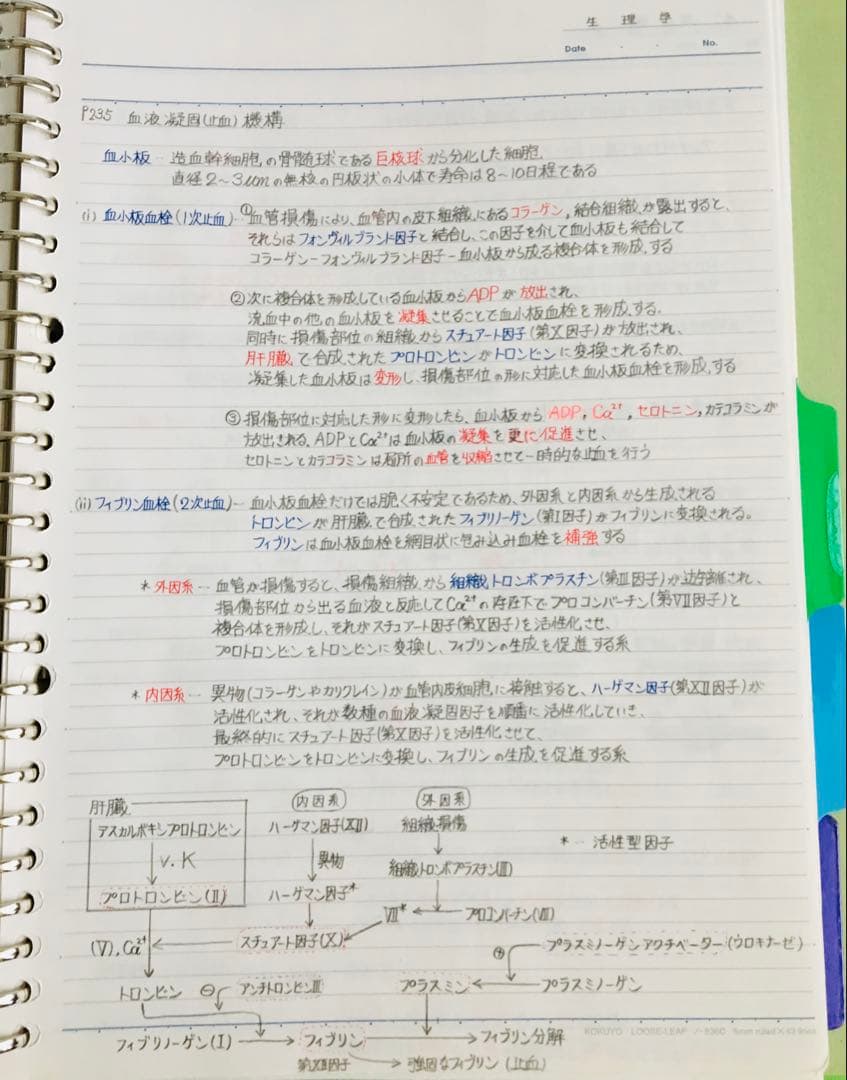 生理学
Date ・ ・ No.
P235 血液凝固(止血)機構
血小板 ― 造血幹細胞の骨髄球である巨核球から分化した細胞.
直径2～3μmの無核の円板状の小体で寿命は8～10日程である
(i) 血小板血栓(1次止血)…①血管損傷により、血管内の皮下組織にあるコラーゲン,結合組織が露出すると、
それらはフォンヴィルブランド因子と結合し、この因子を介して血小板も結合して
コラーゲン-フォンヴィルブランド因子-血小板から成る複合体を形成する
②次に複合体を形成している血小板からADPが放出され、
流血中の他の血小板を凝集させることで血小板血栓を形成する。
同時に損傷部位の組織からスチュアート因子(第X因子)が放出され、
肝臓で合成されたプロトロンビンがトロンビンに変換されるため、
凝集した血小板は変形し、損傷部位の形に対応した血小板血栓を形成する
③損傷部位に対応した形に変形したら、血小板からADP, Ca²⁺, セロトニン,カテコラミンが
放出される。ADPとCa²⁺は血小板の凝集を更に促進させ、
セロトニンとカテコラミンは局所の血管を収縮させて一時的な止血を行う
(ii) フィブリン血栓(2次止血)― 血小板血栓だけでは脆く不安定であるため、外因系と内因系から生成される
トロンビンが肝臓で合成されたフィブリノーゲン(第I因子)がフィブリンに変換される。
フィブリンは血小板血栓を網目状に包み込み血栓を補強する
* 外因系 ― 血管が損傷すると、損傷組織から組織トロンボプラスチン(第III因子)が遊離され、
損傷部位から出る血液と反応してCa²⁺の存在下でプロコンバーチン(第VII因子)と
複合体を形成し、それがスチュアート因子(第X因子)を活性化させ、
プロトロンビンをトロンビンに変換し、フィブリンの生成を促進する系
* 内因系 ― 異物(コラーゲンやカリクレイン)が血管内皮細胞に接触すると、ハーゲマン因子(第XII因子)が
活性化され、それが数種の血液凝固因子を順番に活性化していき、
最終的にスチュアート因子(第X因子)を活性化させて、
プロトロンビンをトロンビンに変換し、フィブリンの生成を促進する系
肝臓 内因系 外因系
デスカルボキシプロトロンビン ハーゲマン因子(XII) 組織損傷
* ― 活性型因子
V.K 異物 組織トロンボプラスチン(III)
プロトロンビン(II) ハーゲマン因子*
VII* ← プロコンバーチン(VII)
(V), Ca²⁺ ← スチュアート因子(X) プラスミノーゲンアクチベーター(ウロキナーゼ)
⊕
トロンビン ⊖ アンチトロンビンIII プラスミン ← プラスミノーゲン
KOKUYO LOOSE-LEAF
フィブリノーゲン(I) → フィブリン → フィブリン分解
第XIII因子 → 強固なフィブリン(止血)